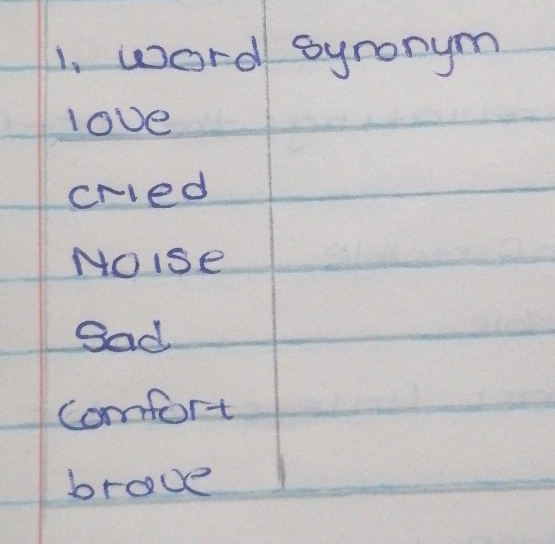 1. Word Synonym
love
cried
Noise
Sad
Comfort
brave